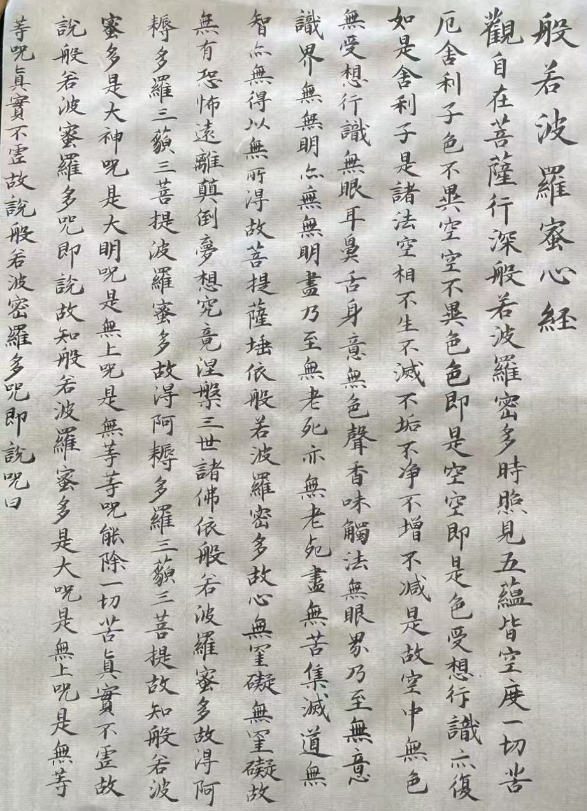 般若波羅蜜心経
觀自在菩薩行深般若波羅密多時照見五蘊皆空度一切苦
厄舍利子色不異空空不異色色即是空空即是色受想行識亦復
如是舍利子是諸法空相不生不滅不垢不净不增不减是故空中無色
無受想行識無眼耳鼻舌身意無色聲香味觸法無眼界乃至無意
識界無無明亦無無明盡乃至無老死亦無老死盡無苦集滅道無
智亦無得以無所得故菩提薩埵依般若波羅密多故心無罣礙無罣礙故
無有恐怖遠離顛倒夢想究竟涅槃三世諸佛依般若波羅蜜多故得阿
耨多羅三藐三菩提波羅蜜多故得阿耨多羅三藐三菩提故知般若波
蜜多是大神咒是大明咒是無上咒是無等等咒能除一切苦真實不虛故
說般若波蜜羅多咒即說故知般若波羅蜜多是大咒是無上咒是無等
等咒真實不虛故說般若波密羅多咒即說咒曰